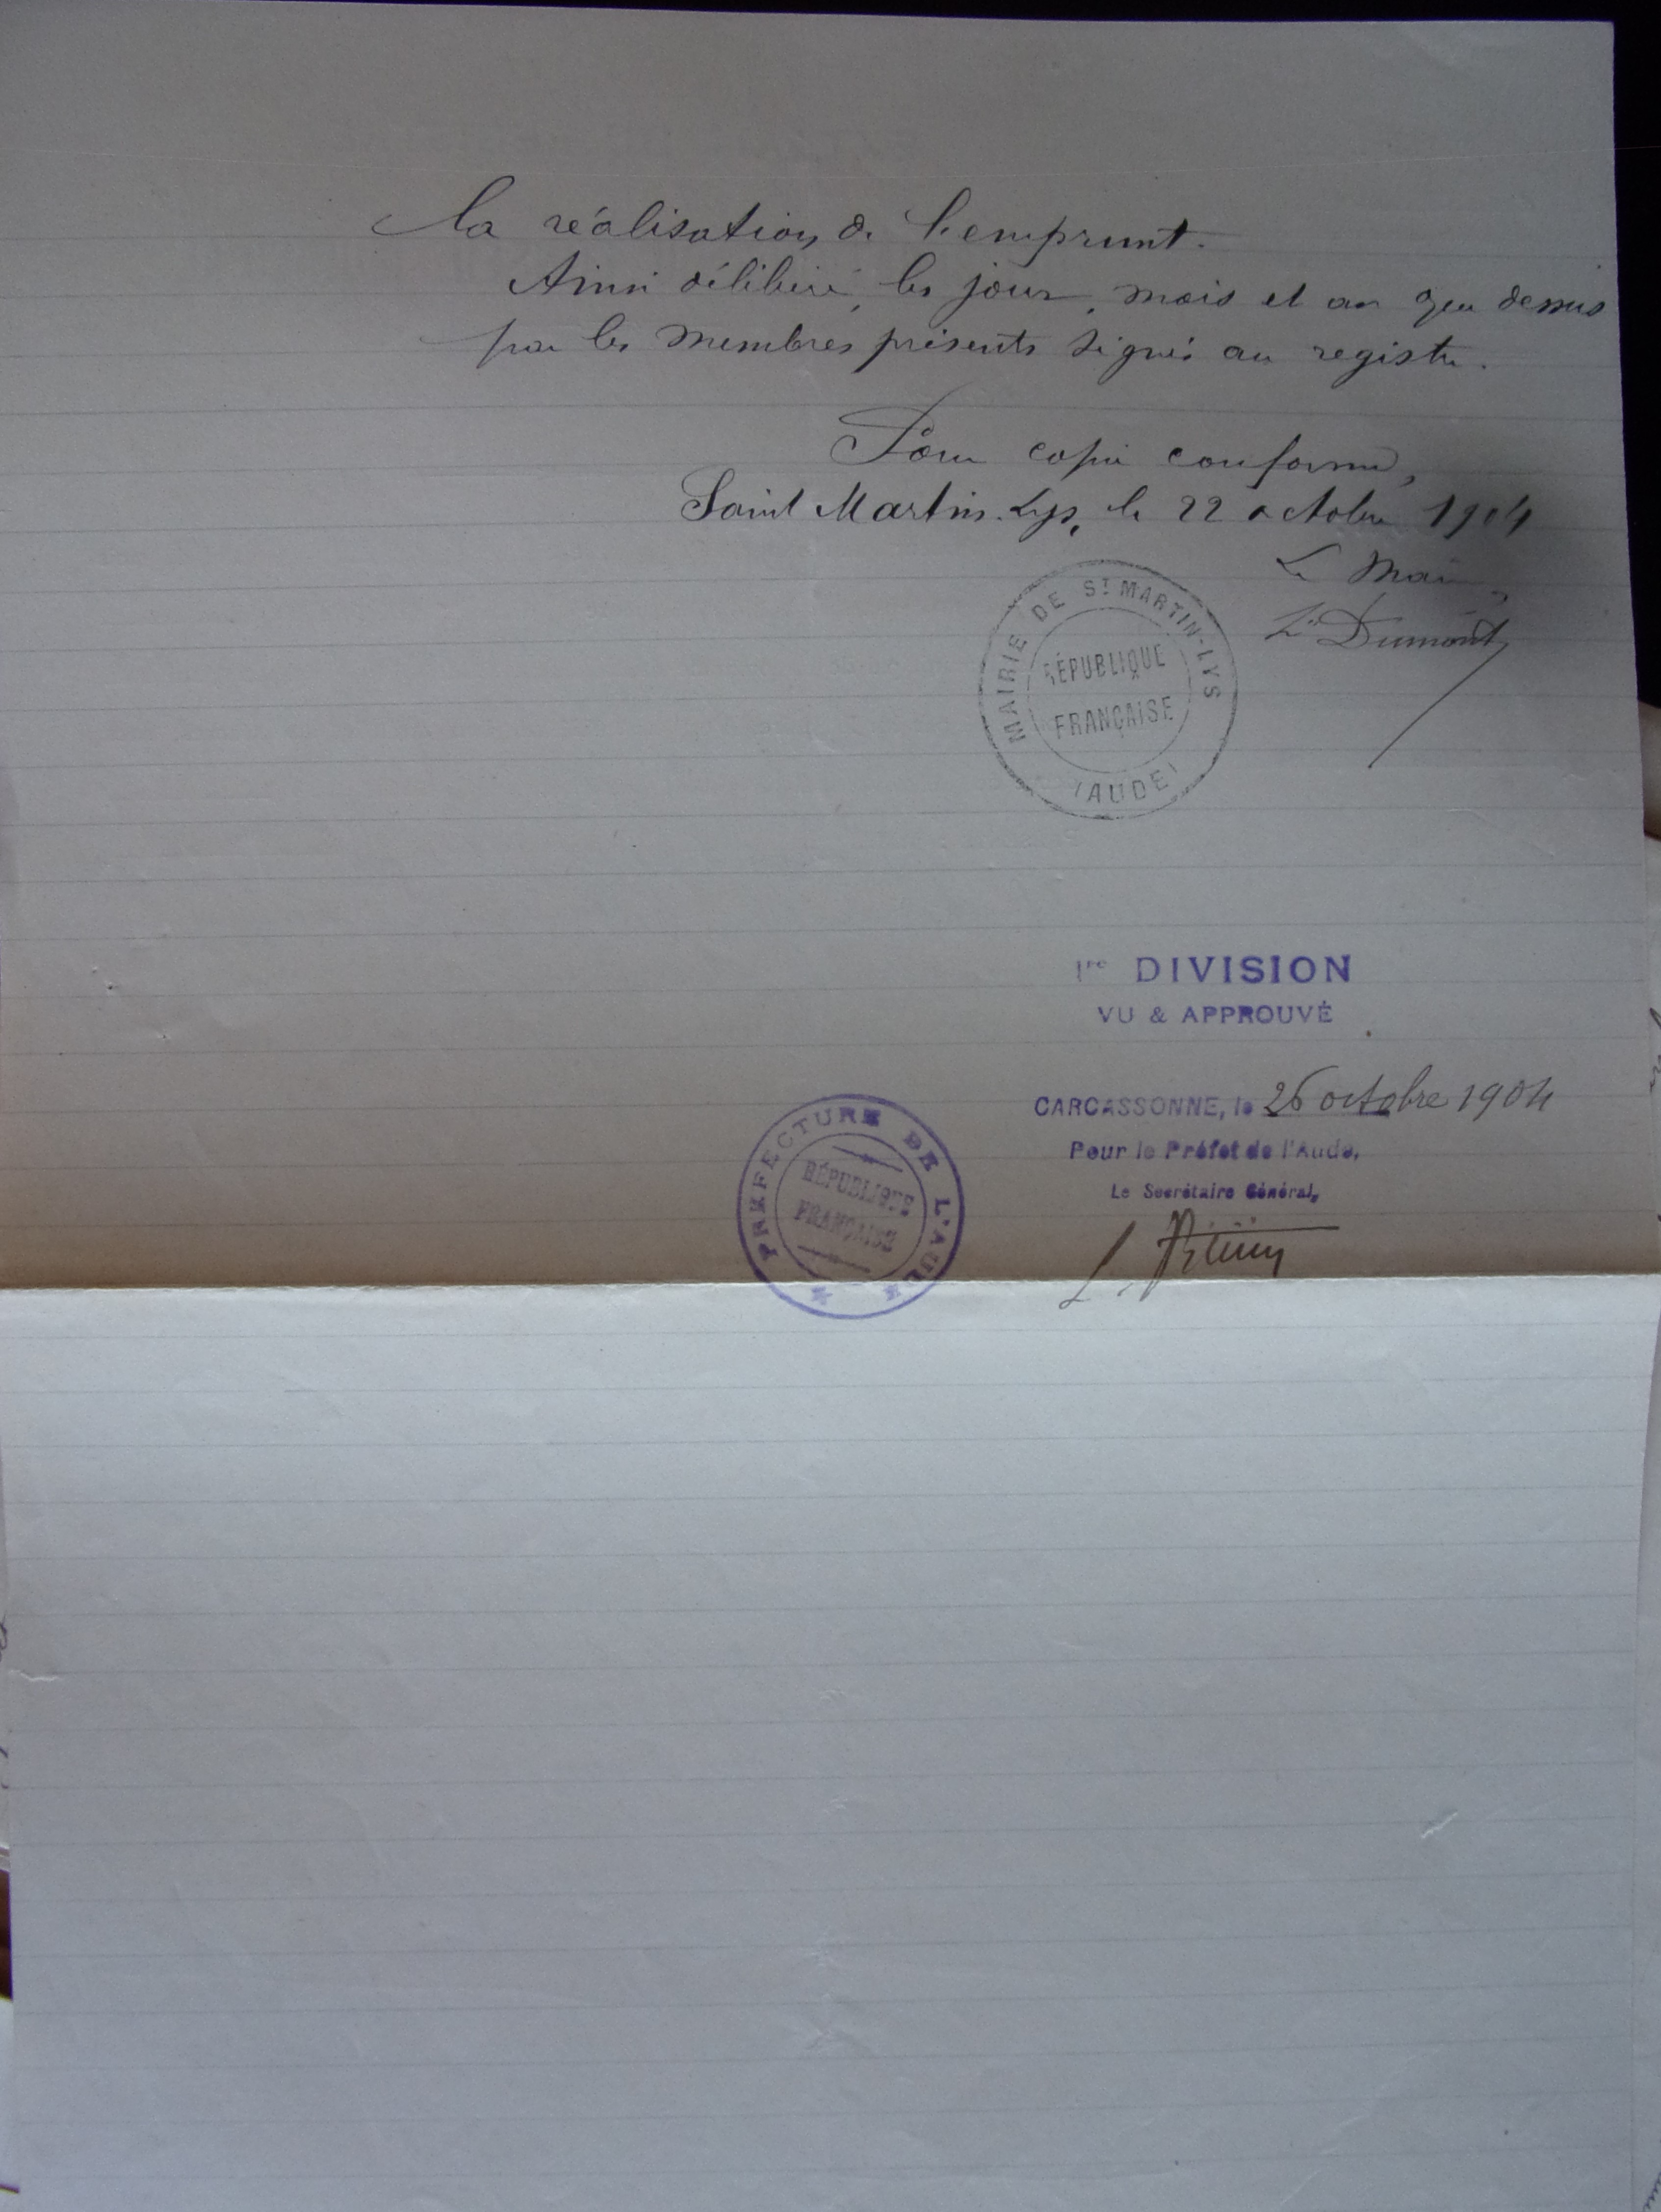 la réalisation de l'emprunt.
Ainsi délibéré, les jour, mois et an que dessus
par les membres présents signés au registre.
Pour copie conforme,
Saint Martin-Lys, le 22 octobre 1904
Le Maire,
Dumont
MAIRIE DE ST MARTIN-LYS
RÉPUBLIQUE
FRANÇAISE
(AUDE)
1re DIVISION
VU & APPROUVÉ
CARCASSONNE, le 26 octobre 1904
Pour le Préfet de l'Aude,
Le Secrétaire Général,
PRÉFECTURE DE L'AUDE
RÉPUBLIQUE
FRANÇAISE